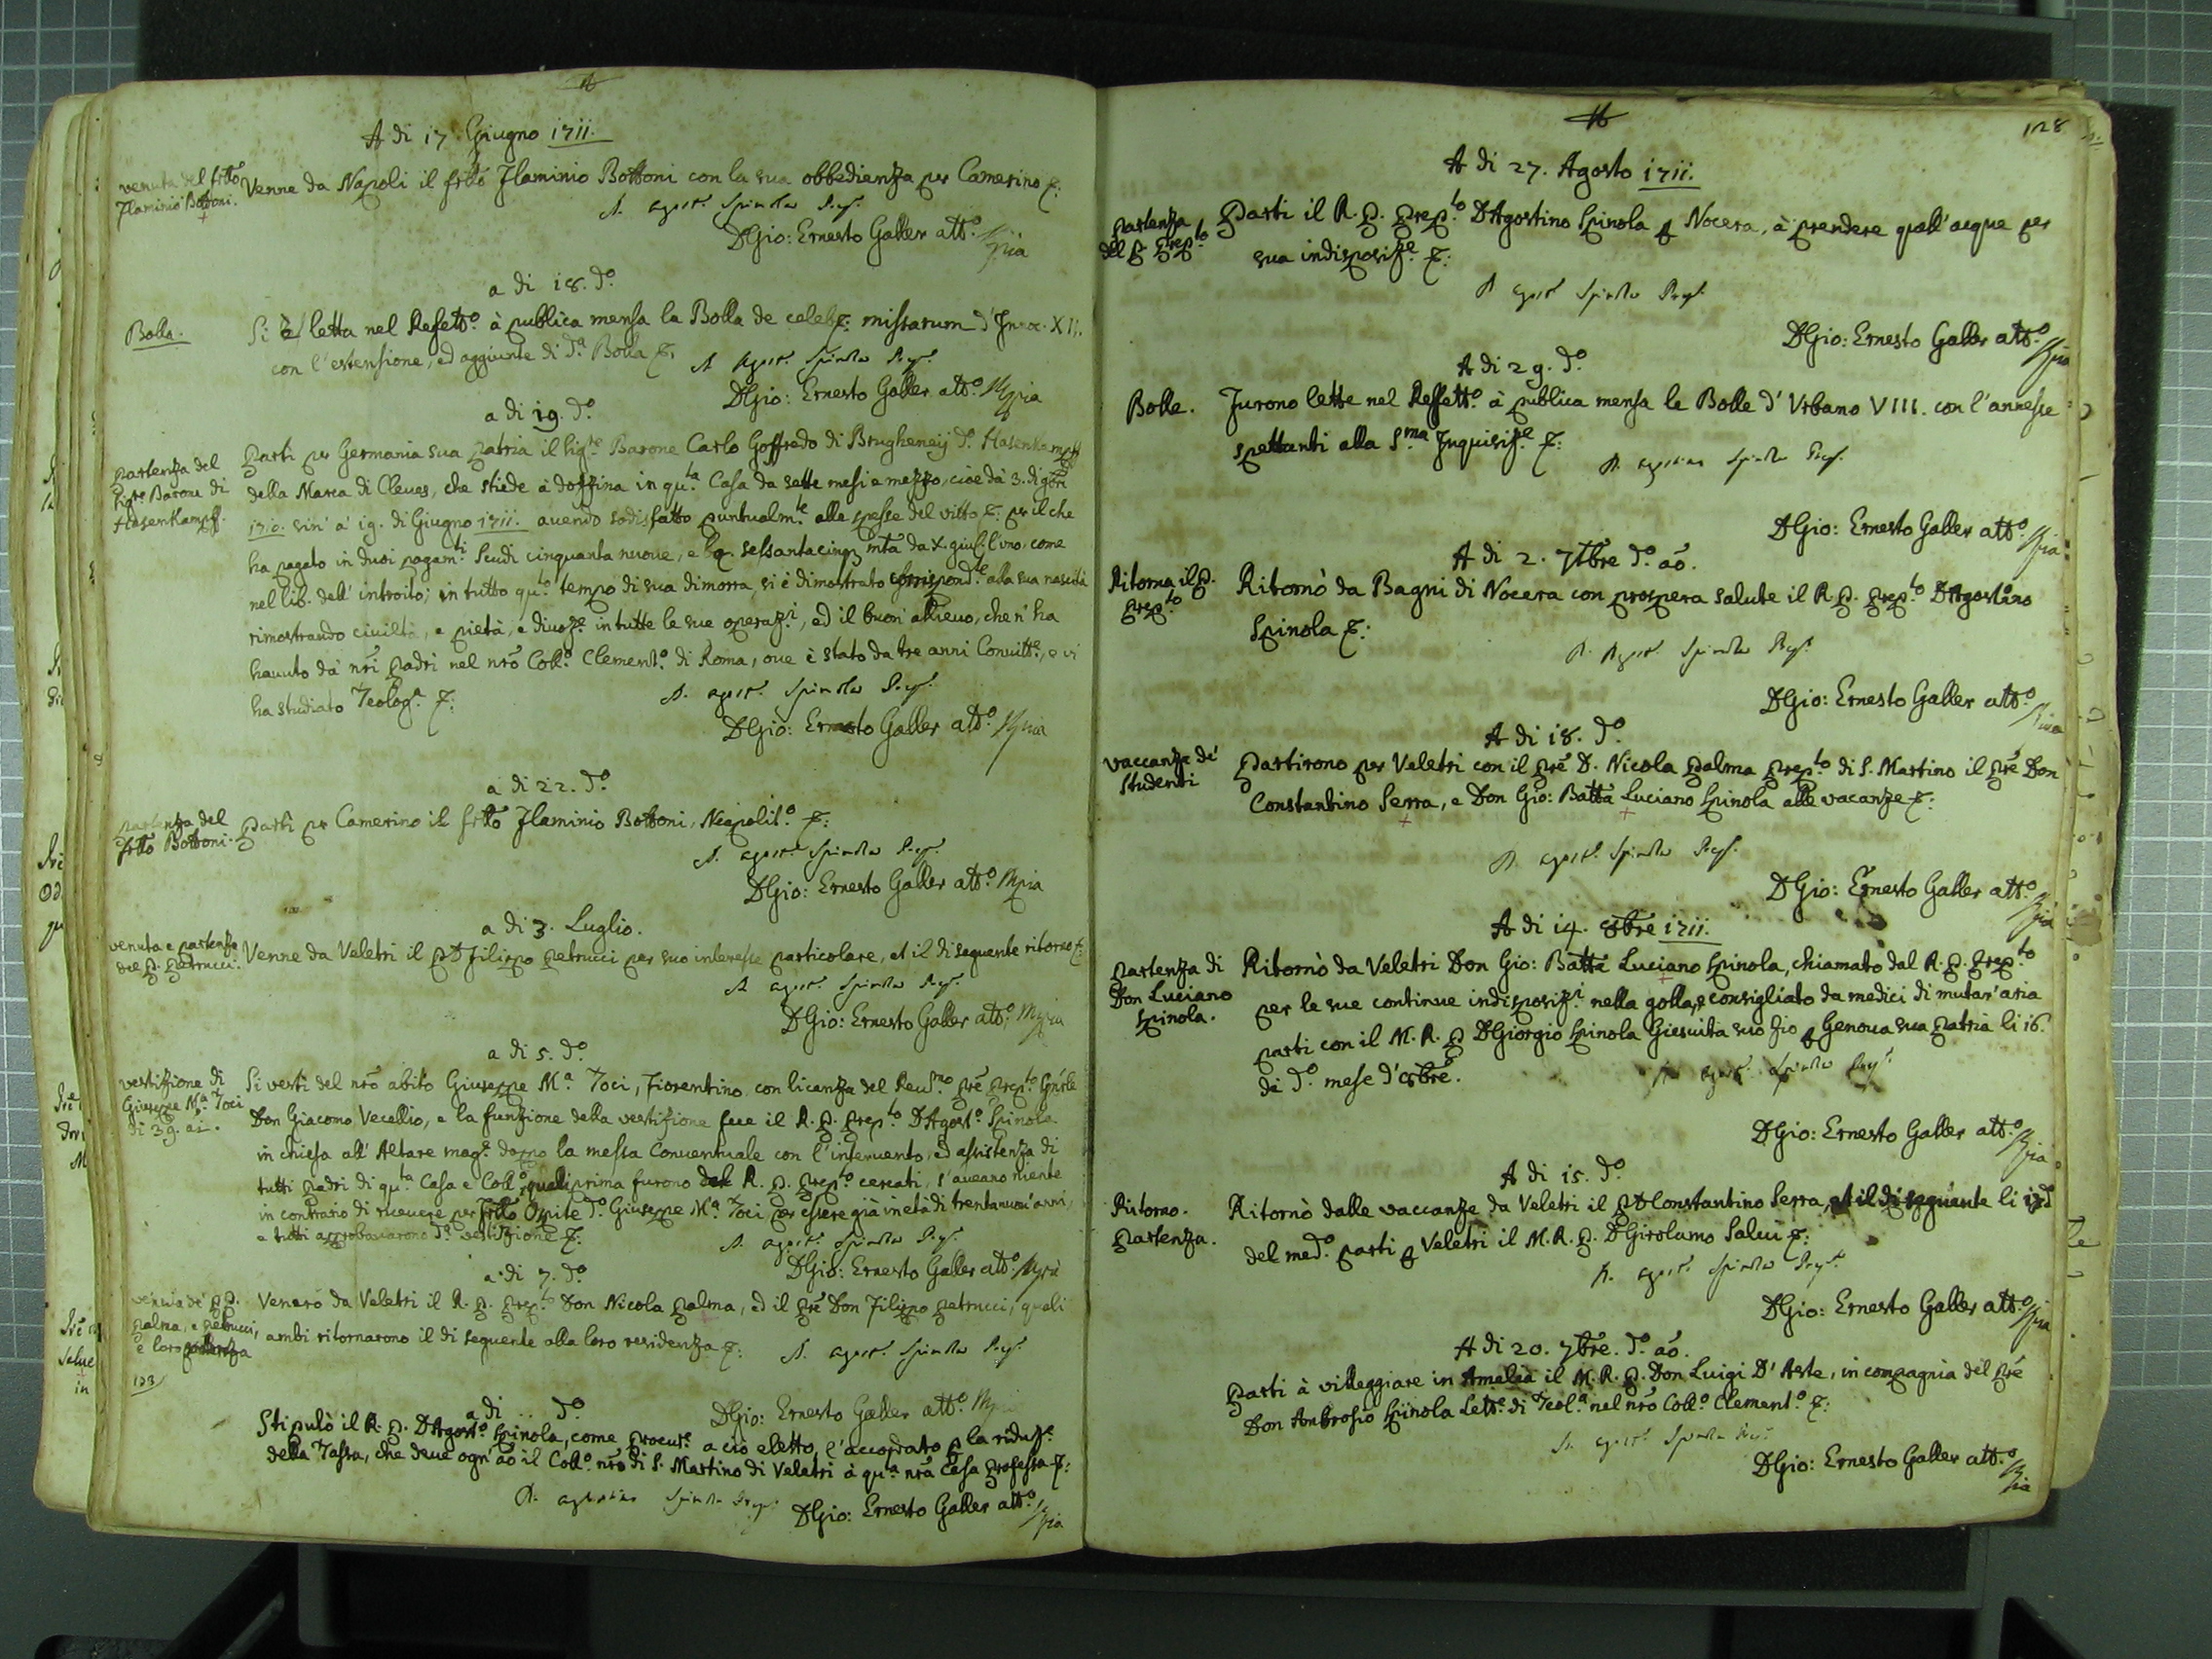 A di 17. Giugno 1711.
venuta del frłło
Flaminio Bottoni.
Venne da Napoli il frłło Flaminio Bottoni con la sua obbedienza per Camerino &:
D. Agost. Spinola Prep.
D Gio: Ernesto Galler att.º Mpria
a di 18. d.º
Bolla.
Si è letta nel Refett.º à publica mensa la Bolla de celebr: missarum d'Innoc. XII.
con l'estensione, ed aggiunte di d.ª Bolla &:
D. Agost. Spinola Prep.
D Gio: Ernesto Galler att.º Mpria
a di 19. d.º
Partenza del
Sig.re Barone di
Hasenkampff.
Parti per Germania sua patria il Sig.re Barone Carlo Goffredo di Brugheneij d.º Hasenkampff
della Marca di Cleves, che stiede à dozzina in qu.ta Casa da sette mesi e mezzo, cioè dà 3. di
1710. sin' a' 19. di Giugno 1711. avendo sodisfatto puntualm.te alle spese del vitto &: per il che
ha pagato in duoi pagam.ti Scudi cinquanta nuove, e sessantacinq m.ta da X. giulj l'uno, come
nel lib. dell' introito; in tutto qu.to tempo di sua dimorra, si è dimostrato corrispond.te alla sua nascita
rimostrando civiltà, e pietà, e divoz.e in tutte le sue operaz.i, ed il buon allievo, che n' ha
havuto dà nri Padri nel nrõ Coll.º Clement.º di Roma, ove è stato da tre anni Convitt.e, e vi
ha studiato Teolog.ª &:
D. Agost. Spinola Prep.
D Gio: Ernesto Galler att.º Mpria
a di 22. d.º
partenza del
frłło Bottoni.
Parti per Camerino il frłło Flaminio Bottoni, Neapolit.º &:
D. Agost. Spinola Prep.
D Gio: Ernesto Galler att.º Mpria
a di 3. Luglio.
venuta e partenza
del P. Petrucci.
Venne da Veletri il P D Filippo Petrucci per suo interesse particolare, et il di seguente ritorno &:
D. Agost. Spinola Prep.
D Gio: Ernesto Galler att.º Mpria
a di 5. d.º
vestizione di
Giuseppe M.ª Toci
di 29. ai.
Si vesti del nrõ abito Giuseppe M.ª Toci, Fiorentino con licenza del Reu.mo Prẽ Prep.to Gnrle
Don Giacomo Vecellio, e la funzione della vestizione fece il R. P. Prep.to D Agost.º Spinola
in chiesa all' Altare mag.e doppo la messa Conventuale con l'intervento, ed assistenza di
tutti Padri di qu.ta Casa e Coll.º, quali prima furono dal R. P. Prep.to cercati, s'aveano niente
in contrario di ricevere per frłło Ospite d.º Giuseppe M.ª Toci per essere già in età di trentanuoi anni,
e tutti approbavarono d.ª vestizione &:
D. Agost. Spinola Prep.
D Gio: Ernesto Galler att.º Mpria
a di 7. d.º
venuta de' PP.
Palma, e Petrucci,
e loro partenza
Venero da Veletri il R. P. Prep.to Don Nicola Palma, ed il Prẽ Don Filippo Petrucci, quali
ambi ritornarono il di seguente alla loro residenza &:
D. Agost. Spinola Prep.
D Gio: Ernesto Galler att.º
a di .. d.º
Stipulò il R. P. D Agost.º Spinola, come procur.e a ciò eletto, l'accordato p la riduz.e
della Tassa, che deve ogn' aõ il Coll.º nrõ di S. Martino di Veletri à qu.ª nrã Casa Professa &:
D. Agostino Spinola Prep.
D Gio: Ernesto Galler att.º Mpria
128
A di 27. Agosto 1711.
Partenza
del P Prep.to
Parti il R. P. Prep.to D Agostino Spinola p Nocera, à prendere quell' acque per
sua indisposiz.e &:
D Agost. Spinola Prep.
D Gio: Ernesto Galler att.º Mpria
A di 29. d.º
Bolle.
Furono lette nel Reffett.º à publica mensa le Bolle d' Urbano VIII. con l'annesse
spettanti alla S.ma Inquisiz.e &:
D. Agostino Spinola Prep.
D Gio: Ernesto Galler att.º Mpria
A di 2. 7bre d.º aõ.
Ritorna il P.
Prep.to
Ritornò da Bagni di Nocera con prospera salute il R. P. Prep.to D Agostino
Spinola &:
D. Agost. Spinola Prep.
D Gio: Ernesto Galler att.º Mpria
A di 18. d.º
vaccanze de'
Studenti
Partirono per Veletri con il Prẽ D. Nicola Palma Prep.to di S. Martino il Prẽ Don
Constantino Serra, e Don Gio: Batta Luciano Spinola alle vacanze &:
D. Agost. Spinola Prep.
D Gio: Ernesto Galler att.º Mpria
A di 14. 8bre 1711.
partenza di
Don Luciano
Spinola.
Ritornò da Veletri Don Gio: Batta Luciano Spinola, chiamato dal R. P. Prep.to
per le sue continue indisposiz.i nella golla, e consigliato da medici di mutar' aria
parti con il M. R. P D Giorgio Spinola Giesuita suo Zio p Genova sua patria li 16.
di d.º mese d' 8bre.
D. Agost. Spinola Prep.
D Gio: Ernesto Galler att.º Mpria
A di 15. d.º
Ritorno.
Partenza.
Ritornò dalle vaccanze da Veletri il P D Constantino Serra, et il di seguente li
del med.º parti p Veletri il M. R. P. D Girolamo Salvi &:
D. Agost. Spinola Prep.
D Gio: Ernesto Galler att.º Mpria
A di 20. 7bre. d.º aõ.
Parti à villeggiare in Amelia il M. R. P. Don Luigi D' Aste, in compagnia del Prẽ
Don Ambrosio Spinola Lett.e di Teol.ª nel nrõ Coll.º Clement.º &:
D. Agost. Spinola Prep.
D Gio: Ernesto Galler att.º Mpria